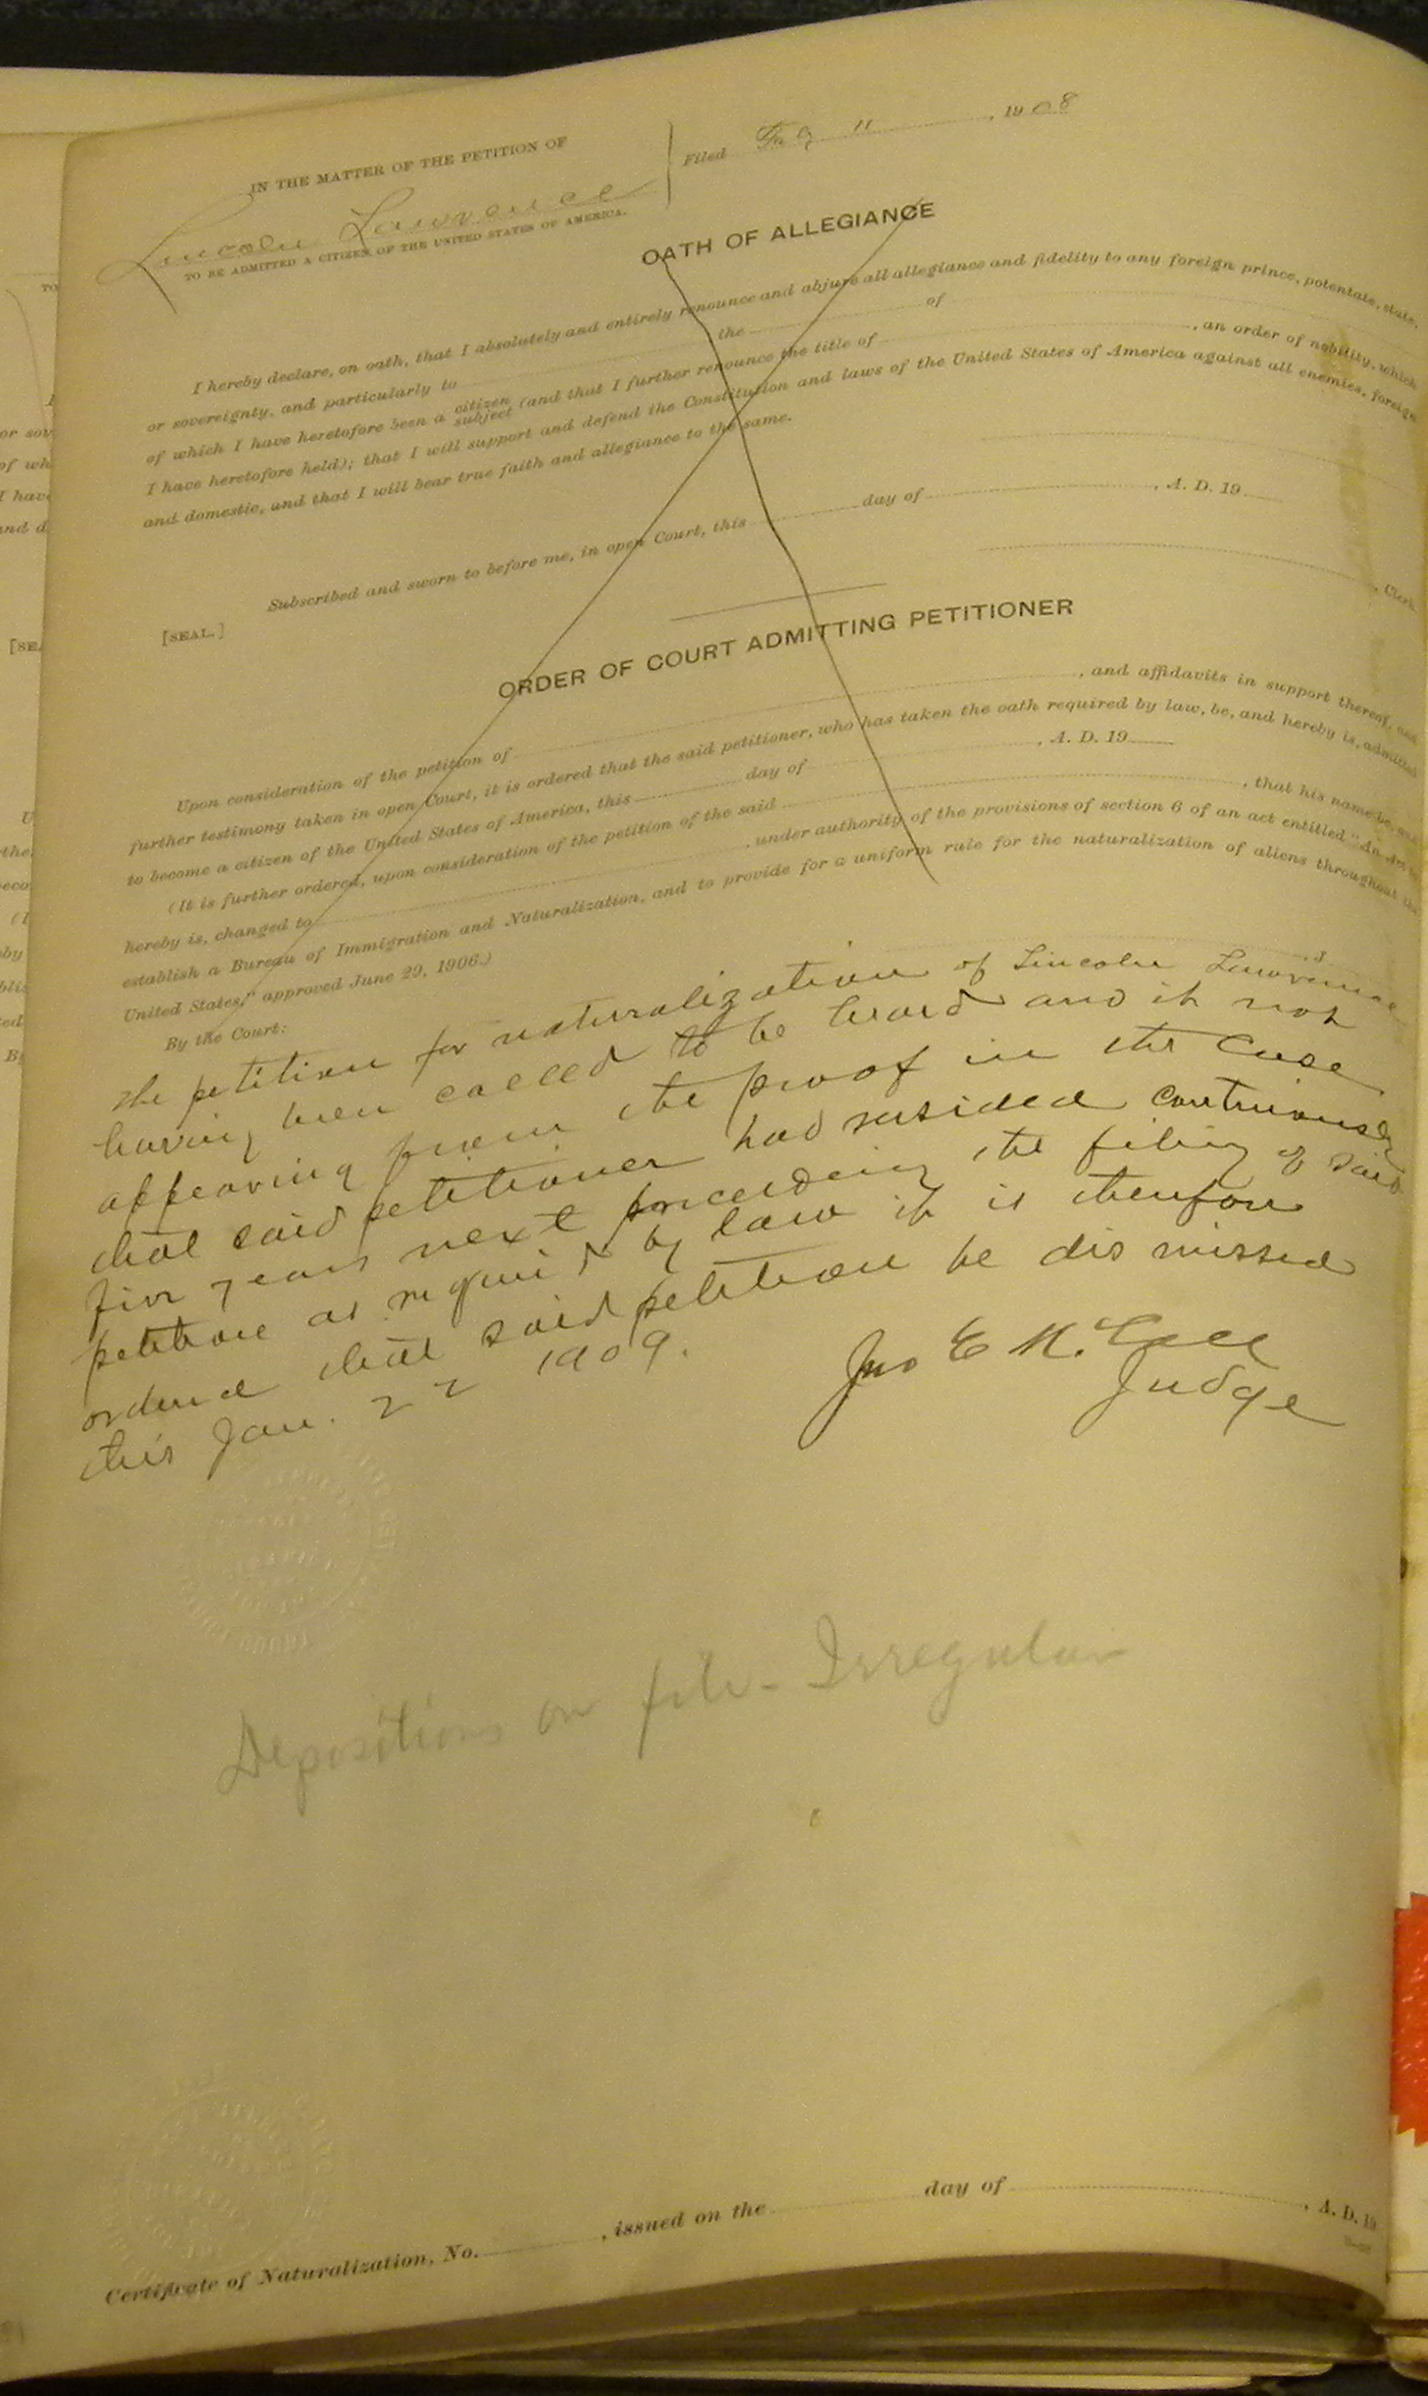 IN THE MATTER OF THE PETITION OF
Lincoln Lawrence
TO BE ADMITTED A CITIZEN OF THE UNITED STATES OF AMERICA.
Filed 11, 1908
OATH OF ALLEGIANCE
I hereby declare, on oath, that I absolutely and entirely renounce and abjure all allegiance and fidelity to any foreign prince, potentate, state,
or sovereignty, and particularly to the of
of which I have heretofore been a citizen subject (and that I further renounce the title of , an order of nobility, which
I have heretofore held); that I will support and defend the Constitution and laws of the United States of America against all enemies, foreign
and domestic, and that I will bear true faith and allegiance to the same.
Subscribed and sworn to before me, in open Court, this day of , A. D. 19
[SEAL.] , Clerk.
ORDER OF COURT ADMITTING PETITIONER
Upon consideration of the petition of , and affidavits in support thereof, and
further testimony taken in open Court, it is ordered that the said petitioner, who has taken the oath required by law, be, and hereby is, admitted
to become a citizen of the United States of America, this day of , A. D. 19
(It is further ordered, upon consideration of the petition of the said , that his name be, and
hereby is, changed to , under authority of the provisions of section 6 of an act entitled "An Act to
establish a Bureau of Immigration and Naturalization, and to provide for a uniform rule for the naturalization of aliens throughout the
United States," approved June 29, 1906.)
By the Court: , J.
The petition for naturalization of Lincoln Lawrence
having been called to be heard and it not
appearing from the proof in the case
that said petitioner had resided continuously
five years next preceeding the filing of said
petition as required by law it is therefore
ordered that said petition be dismissed
this Jan. 22 1909.
Jno E McCall
Judge
Depositions on file - Irregular
Certificate of Naturalization, No. , issued on the day of , A. D. 19